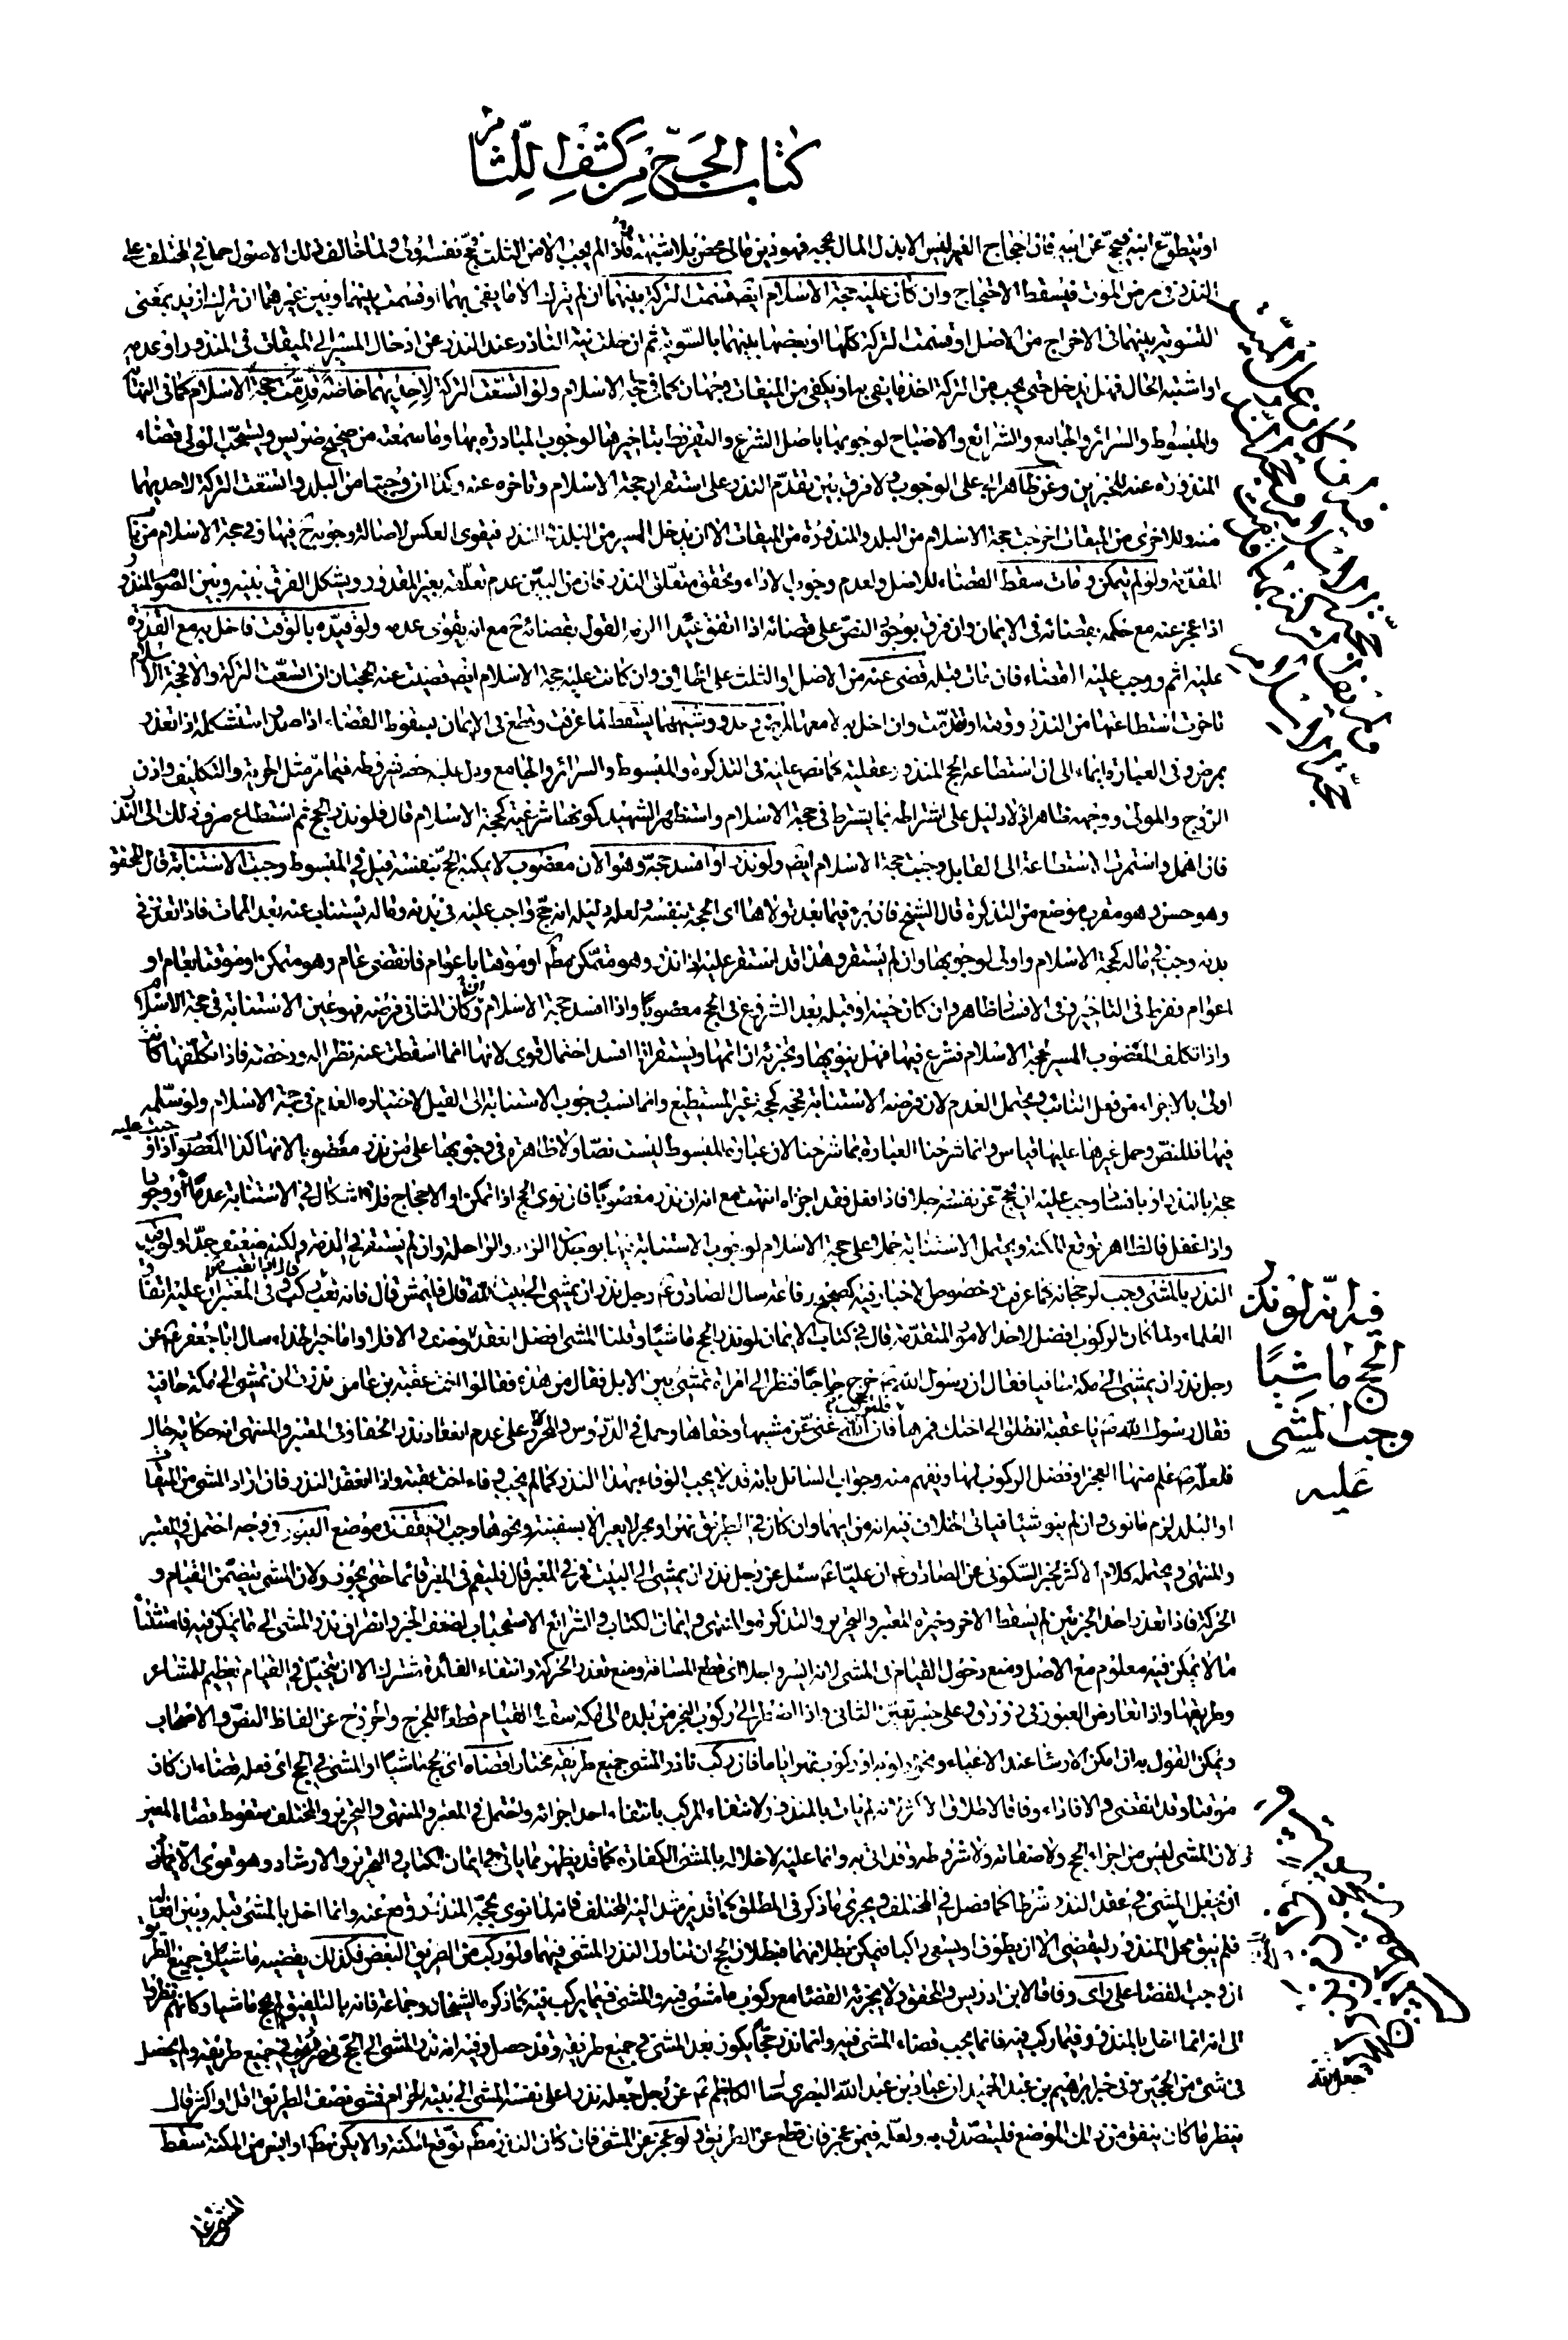 كتاب الحج من كشف اللثام
او يتطوع ابنه فيحج عن ابيه فان احجاج الغير ليس الا بذل المال لحجه فهو دين مالي محض بلا شبهة فاذا لم يجب الا من الثلث فحج نفسه اولى ولما خالف ذلك الاصول حملها في المختلف على
النذر في مرض الموت فيسقط الاحتجاج وان كان عليه حجة الاسلام ايضا قسمت التركة بينهما ان لم يترك الا ما يفي بهما او قسمت بينهما وبين غيرهما ان ترك ازيد بمعنى
التسوية بينهما في الاخراج من الاصل او قسمت التركة كلها او بعضها بينهما بالسوية ثم ان خلت نية الناذر عند النذر عن ادخال المسير الى الميقات في المنذور او عدمه
او اشتبه الحال فهل يدخل حتى يجب من التركة اخذ ما يفي بها او يكفي من الميقات وجهان كما في حجة الاسلام ولو اتسعت التركة لاحديهما خاصة قدمت حجة الاسلام كما في النها
والمبسوط والسرائر والجامع والشرائع والاصباح لوجوبها باصل الشرع والتفريط بتاخيرها لوجوب المبادرة بها وما سمعته من صحيح ضريس ويستحب للولي قضاء
المنذورة عنه للخبرين وعن ظاهر ابي علي الوجوب ولا فرق بين تقدم النذر على استقرار حجة الاسلام وتاخره عنه وكذا ان وجبتا من البلد واتسعت التركة لاحديهما
منه وللاخرى من الميقات اخرجت حجة الاسلام من البلد والمنذورة من الميقات الا ان يدخل المسير من البلد في النذر فيقوى العكس لاصالة وجوبه ح فيها وفي حجة الاسلام من با
المقدمة ولو لم يتمكن ومات سقط القضاء للاصل ولعدم وجوب الاداء وتحقق متعلق النذر فان من البين عدم تعلقه بغير المقدور ويشكل الفرق بينه وبين الصوم المنذور
اذا عجز عنه مع حكمه بقضائه في الايمان وان فرق بوجود النص على قضائه اذا اتفق عيدا لزمه القول بقضائه ح مع انه يقوى عدمه ولو قيده بالوقت فاخل به مع القدرة
عليه اثم ووجب عليه القضاء فان مات قبله قضي عنه من الاصل او الثلث على الخلاف وان كانت عليه حجة الاسلام ايضا قضيت عنه حجتان ان اتسعت التركة والا فحجة الاسلام
تاخرت استطاعتها من النذر ووقته او تقدمت وان اخل به لا معها لمرض وعدو وشبههما يسقط لما عرفت وقطع في الايمان بسقوط القضاء اذا صد واستشكله اذا تعذر
بمرض وفي العبارة ايماء الى ان استطاعة الحج المنذور عقلية كما نص عليه في التذكرة والمبسوط والسرائر والجامع ودل عليه حصر شروطه فيما مر مثل الحرية والتكليف واذن
الزوج والمولى ووجهه ظاهر اذ لا دليل على اشتراطه بما يشترط في حجة الاسلام واستظهر الشهيد كونها شرعية كحجة الاسلام قال فلو نذر الحج ثم استطاع صرف ذلك الى النذر
فان اهمل واستمرت الاستطاعة الى القابل وجبت حجة الاسلام ايضا ولو نذر او افسد حجه وهو الان معضوب لا يمكنه الحج بنفسه قيل في المبسوط وجبت الاستنابة قال المحقق
وهو حسن وهو مقرب موضع من التذكرة قال الشيخ فان برء فيما بعد تولاها اى الحجة بنفسه ولعل دليله انه حج واجب عليه في بدنه وماله يستناب عنه بعد الممات فاذا تعذر في
بدنه وجب في ماله كحجة الاسلام واولى لوجوبها وان لم يستقر وهذا قد استقر عليه اذا نذر وهو متمكن مطلقا او موقتا باعوام فانقضى عام وهو متمكن او موقتا بعام او
اعوام ففرط في التاخير وفي الافساد ظاهر وان كان حينه او قبله بعد الشروع في الحج معضوبا واذا افسد حجة الاسلام وكان الثاني فرضه فهو عين الاستنابة في حجة الاسلام
واذا تكلف المعضوب المسير لحجة الاسلام فشرع فيها فهل ينويها وتجزئه ان اتمها ويستقر اذا افسد احتمال قوي لانها انما اسقطت عنه نظرا له ورخصة فاذا تكلفها كانت
اولى بالاجزاء من فعل النائب ويحتمل العدم لان فرضه الاستنابة فحجه كحجة غير المستطيع وانما نسب وجوب الاستنابة الى القيل لاختياره العدم في حجة الاسلام ولو سلمه
فيها فللنص وحمل غيرها عليها قياس وانما شرحنا العبارة بما شرحنا لان عبارة المبسوط ليست نصا ولا ظاهرة في وجوبها على من نذر معضوبا لانها كذا المعضوب اذا وجبت عليه
حجة بالنذر او بافساد وجب عليه ان يحج عن نفسه رجلا فاذا فعل فقد اجزاه انتهت مع انه ان نذر معضوبا فان نوى الحج اذا تمكن او الاحجاج فلا اشكال في الاستنابة عدما او وجوبا
واذا غفل فالظاهر توقع المكنة ويحتمل الاستنابة حملا على حجة الاسلام لوجوب الاستنابة فيها بوجدان الزاد والراحلة وان لم يستقر في الذمة ولكنه ضعيف جدا ولو قيد
النذر بالمشي وجب لرجحانه كما عرفت وخصوص الاخبار فيه كصحيح رفاعة سال الصادق ع رجل نذر ان يمشي الى بيت الله قال فليمش قال فانه تعب قال اذا تعب ركب وفي المعتبر ان عليه اتفاق
العلماء ولما كان الركوب افضل لاحد الامور المتقدمة قال في كتاب الايمان لو نذر الحج ماشيا وقلنا المشي افضل انعقد الوصف والا فلا واما خبر الحذاء سال ابا جعفر ع عن
رجل نذر ان يمشي الى مكة حافيا فقال ان رسول الله ص خرج حاجا فنظر الى امراة تمشي بين الابل فقال من هذه فقالوا اخت عقبة بن عامر نذرت ان تمشي الى مكة حافية
فقال رسول الله ص يا عقبة انطلق الى اختك فمرها فلتركب فان الله غني عن مشيها وحفاها وحمل في الدروس والمحرر على عدم انعقاد نذر الحفا وفي المعتبر والمنتهى انه حكاية حال
فلعله ص علم منها العجز او فضل الركوب لها ويفهم منه وجواب السائل بانه قد لا يجب الوفاء بهذا النذر كما لم يجب وفاء اخت عقبة واذا انعقد النذر فان اراد المشي من الميقات
او البلد لزم ما نوى وان لم ينو شيئا فياتي الخلاف فيه انه من ايهما وان كان في الطريق نهر او بحر لا يعبر الا بسفينة ونحوها وجب ان يقف في موضع العبور في وجه احتمل في المعتبر
والمنتهى ويحتمله كلام الاكثر لخبر السكوني عن الصادق ع ان عليا ع سئل عن رجل نذر ان يمشي الى البيت فمر في المعبر قال فليقم في المعبر قائما حتى يجوز ولان المشي يتضمن القيام و
الحركة فاذا تعذر احد الجزئين لم يسقط الاخر وخيرة المعتبر والتحرير والتذكرة والمنتهى وايمان الكتاب والشرائع الاستحباب لضعف الخبر وانصراف نذر المشي الى ما يمكن فيه فاستثناء
ما لا يمكن فيه معلوم مع الاصل ومنع دخول القيام في المشي لانه ليس الا جلا اى قطع المسافة ومنع تعذر الحركة وانتفاء الفائدة مشترك الا ان يتخيل في القيام تعظيم للمشاعر
وطريقها واذا تعارض العبور في زورق وعلى جسر تعين الثاني واذا اضطر الى ركوب البحر من بلده الى مكة سقط القيام قطعا للحرج والخروج عن الفاظ النص والاصحاب
ويمكن القول به اذا امكن الارساء عند الاعياء ونحوه فان ركب ناذر المشي جميع طريقه مختارا قضاه اى الحج ماشيا او المشي في الحج اى فعله قضاء ان كان
موقتا وقد انقضى والا فاداء وفاقا لاطلاق الاكثر لانه لم يات بالمنذور لانتفاء المركب بانتفاء احد اجزائه واحتمل في المعتبر والمنتهى والتحرير والمختلف سقوط قضاء المعين
لان المشي ليس من اجزاء الحج ولا صفاته ولا شروطه وقد اتى به وانما عليه لاخلاله بالمشي الكفارة كما قد يظهر مما ياتي في ايمان الكتاب والتحرير والارشاد وهو قوي الا ان
ان يجعل المشي في عقد النذر شرطا كما فصل في المختلف ويجري ما ذكر في المطلق كما قد يرشد اليه المختلف فانه لما نوى بحجه المنذور وقع عنه وانما اخل بالمشي قبله وبين افعاله
فلم يبق محل المنذور ليقضي الا ان يطوف او يسعى راكبا فيمكن بطلانهما فيبطلان الحج ان تناول النذر المشي فيهما ولو ركب من الطريق البعض فكذلك يقضيه ماشيا في جميع الطريق
ان وجب القضاء على راى وفاقا لابن ادريس والمحقق ولا يجزئه القضاء مع ركوب ما مشى فيه والمشي فيما ركب فيه كما ذكره الشيخان وجماعة فانه بالتلفيق لم يحج ماشيا وكانهم نظروا
الى انه انما اخل بالمنذور فيما ركب فيه فانما يجب قضاء المشي فيه وانما نذر حجا يكون بعد المشي في جميع طريقه وقد حصل وفيه انه نذر المشي الى الحج في طريقه في جميع طريقه ولم يحصل
في شيء من الحجتين وفي خبر ابراهيم بن عبد الحميد ان عباد بن عبد الله البصري سال الكاظم ع عن رجل جعل لله نذرا على نفسه المشي الى بيته الحرام فمشى نصف الطريق او اقل او اكثر قال
ينظر ما كان ينفق من ذلك الموضع فليتصدق به ولعله فيمن عجز فان قطع عن الطريق ولو عجز عن المشي فان كان النذر مطلقا توقع المكنة والا يكن مطلقا او ايس من المكنة سقط
فيه انه لو نذر
الحج ماشيا
وجب المشي
عليه